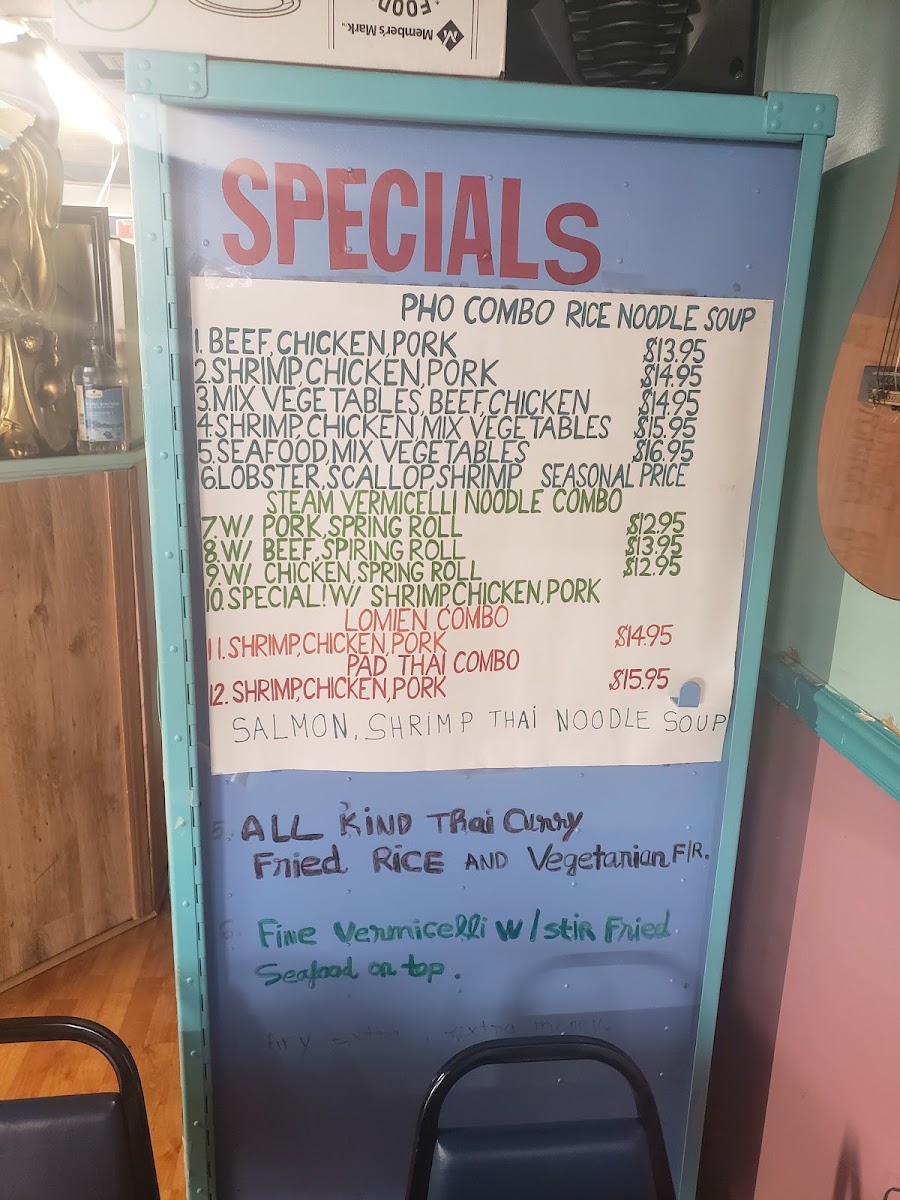 Member's Mark
FOOD
SPECIALS
PHO COMBO RICE NOODLE SOUP
1. BEEF, CHICKEN, PORK $13.95
2. SHRIMP, CHICKEN, PORK $14.95
3. MIX VEGETABLES, BEEF, CHICKEN $14.95
4 SHRIMP, CHICKEN, MIX VEGETABLES $15.95
5. SEAFOOD, MIX VEGETABLES $16.95
6. LOBSTER, SCALLOP, SHRIMP SEASONAL PRICE
STEAM VERMICELLI NOODLE COMBO
7. W/ PORK, SPRING ROLL $12.95
8. W/ BEEF, SPIRING ROLL $13.95
9. W/ CHICKEN, SPRING ROLL $12.95
10. SPECIAL! W/ SHRIMP CHICKEN, PORK
LOMIEN COMBO
11. SHRIMP, CHICKEN, PORK $14.95
PAD THAI COMBO
12. SHRIMP, CHICKEN, PORK $15.95
SALMON, SHRIMP THAI NOODLE SOUP
5. ALL KIND THai Curry
Fried RICE AND Vegetarian F/R.
6. Fine Vermicelli w/ stir Fried
Seafood on top.
extra extra